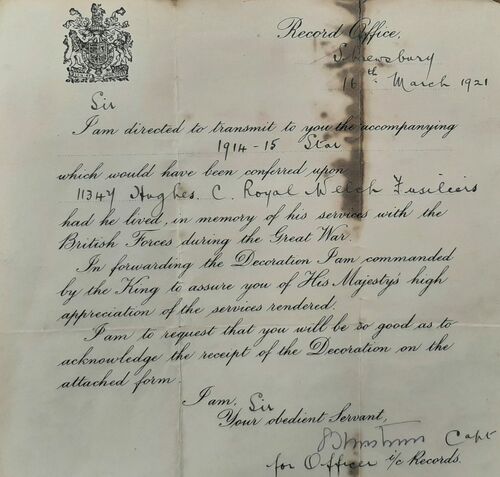 Record Office,
Shrewsbury
16th March 1921
Sir
I am directed to transmit to you the accompanying
1914-15 Star
which would have been conferred upon
11347 Hughes. C. Royal Welch Fusiliers
had he lived, in memory of his services with the
British Forces during the Great War.
In forwarding the Decoration I am commanded
by the King to assure you of His Majesty's high
appreciation of the services rendered.
I am to request that you will be so good as to
acknowledge the receipt of the Decoration on the
attached form.
I am, Sir
Your obedient Servant,
Capt
for Officer i/c Records.